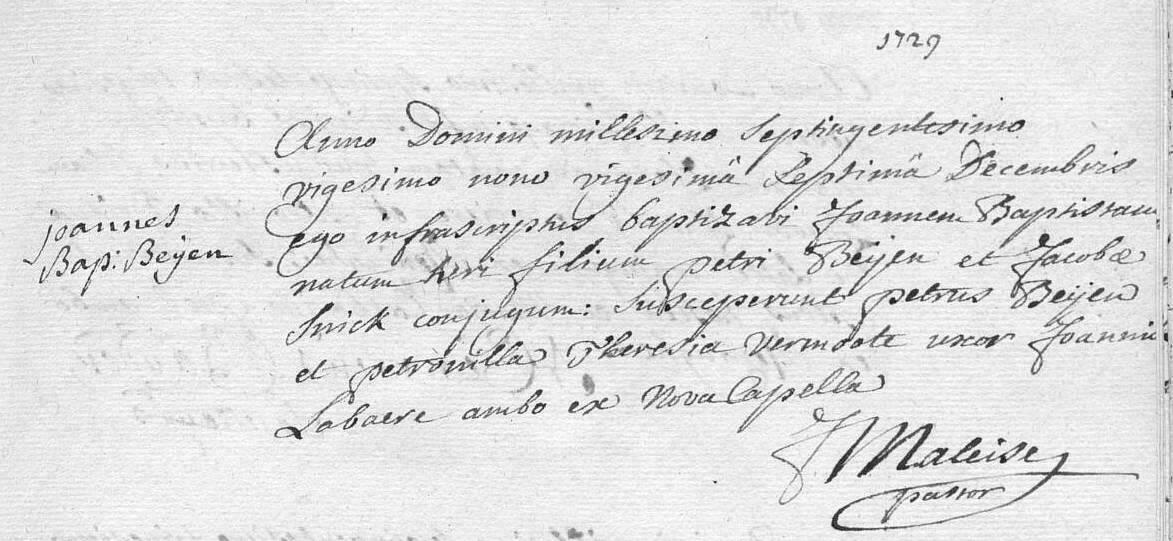 1729
Anno Domini millesimo septingentesimo
vigesimo nono vigesimâ septimâ Decembris
ego infrascriptus baptizavi Joannem Baptistam
natum heri filium petri Beijen et Jacobæ
Snick conjugum: susceperunt petrus Beijen
et petronilla Theresia vermoote uxor Joannis
Labaere ambo ex Nova Capella
joannes
Bap: Beijen
J Maleise
pastor